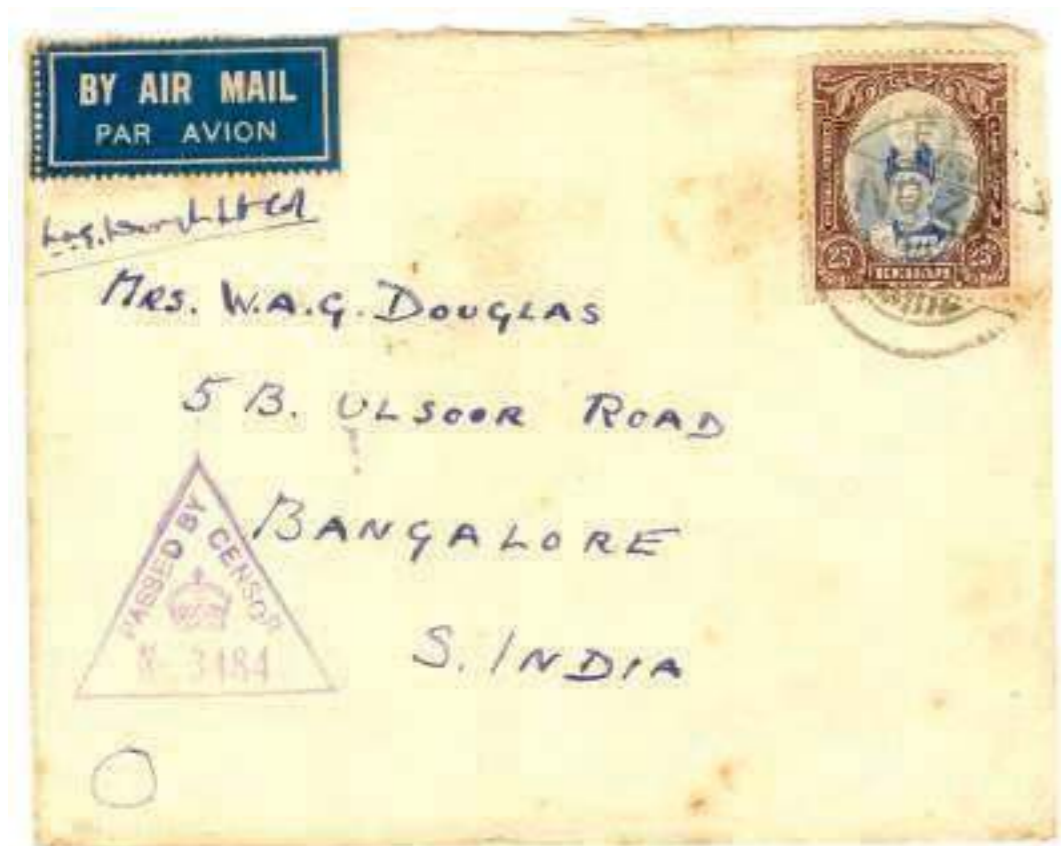 BY AIR MAIL
PAR AVION
Lt Col
MRS. W.A.G. DOUGLAS
5 B. ULSOOR ROAD
BANGALORE
S. INDIA
PASSED BY CENSOR
3484
25 25